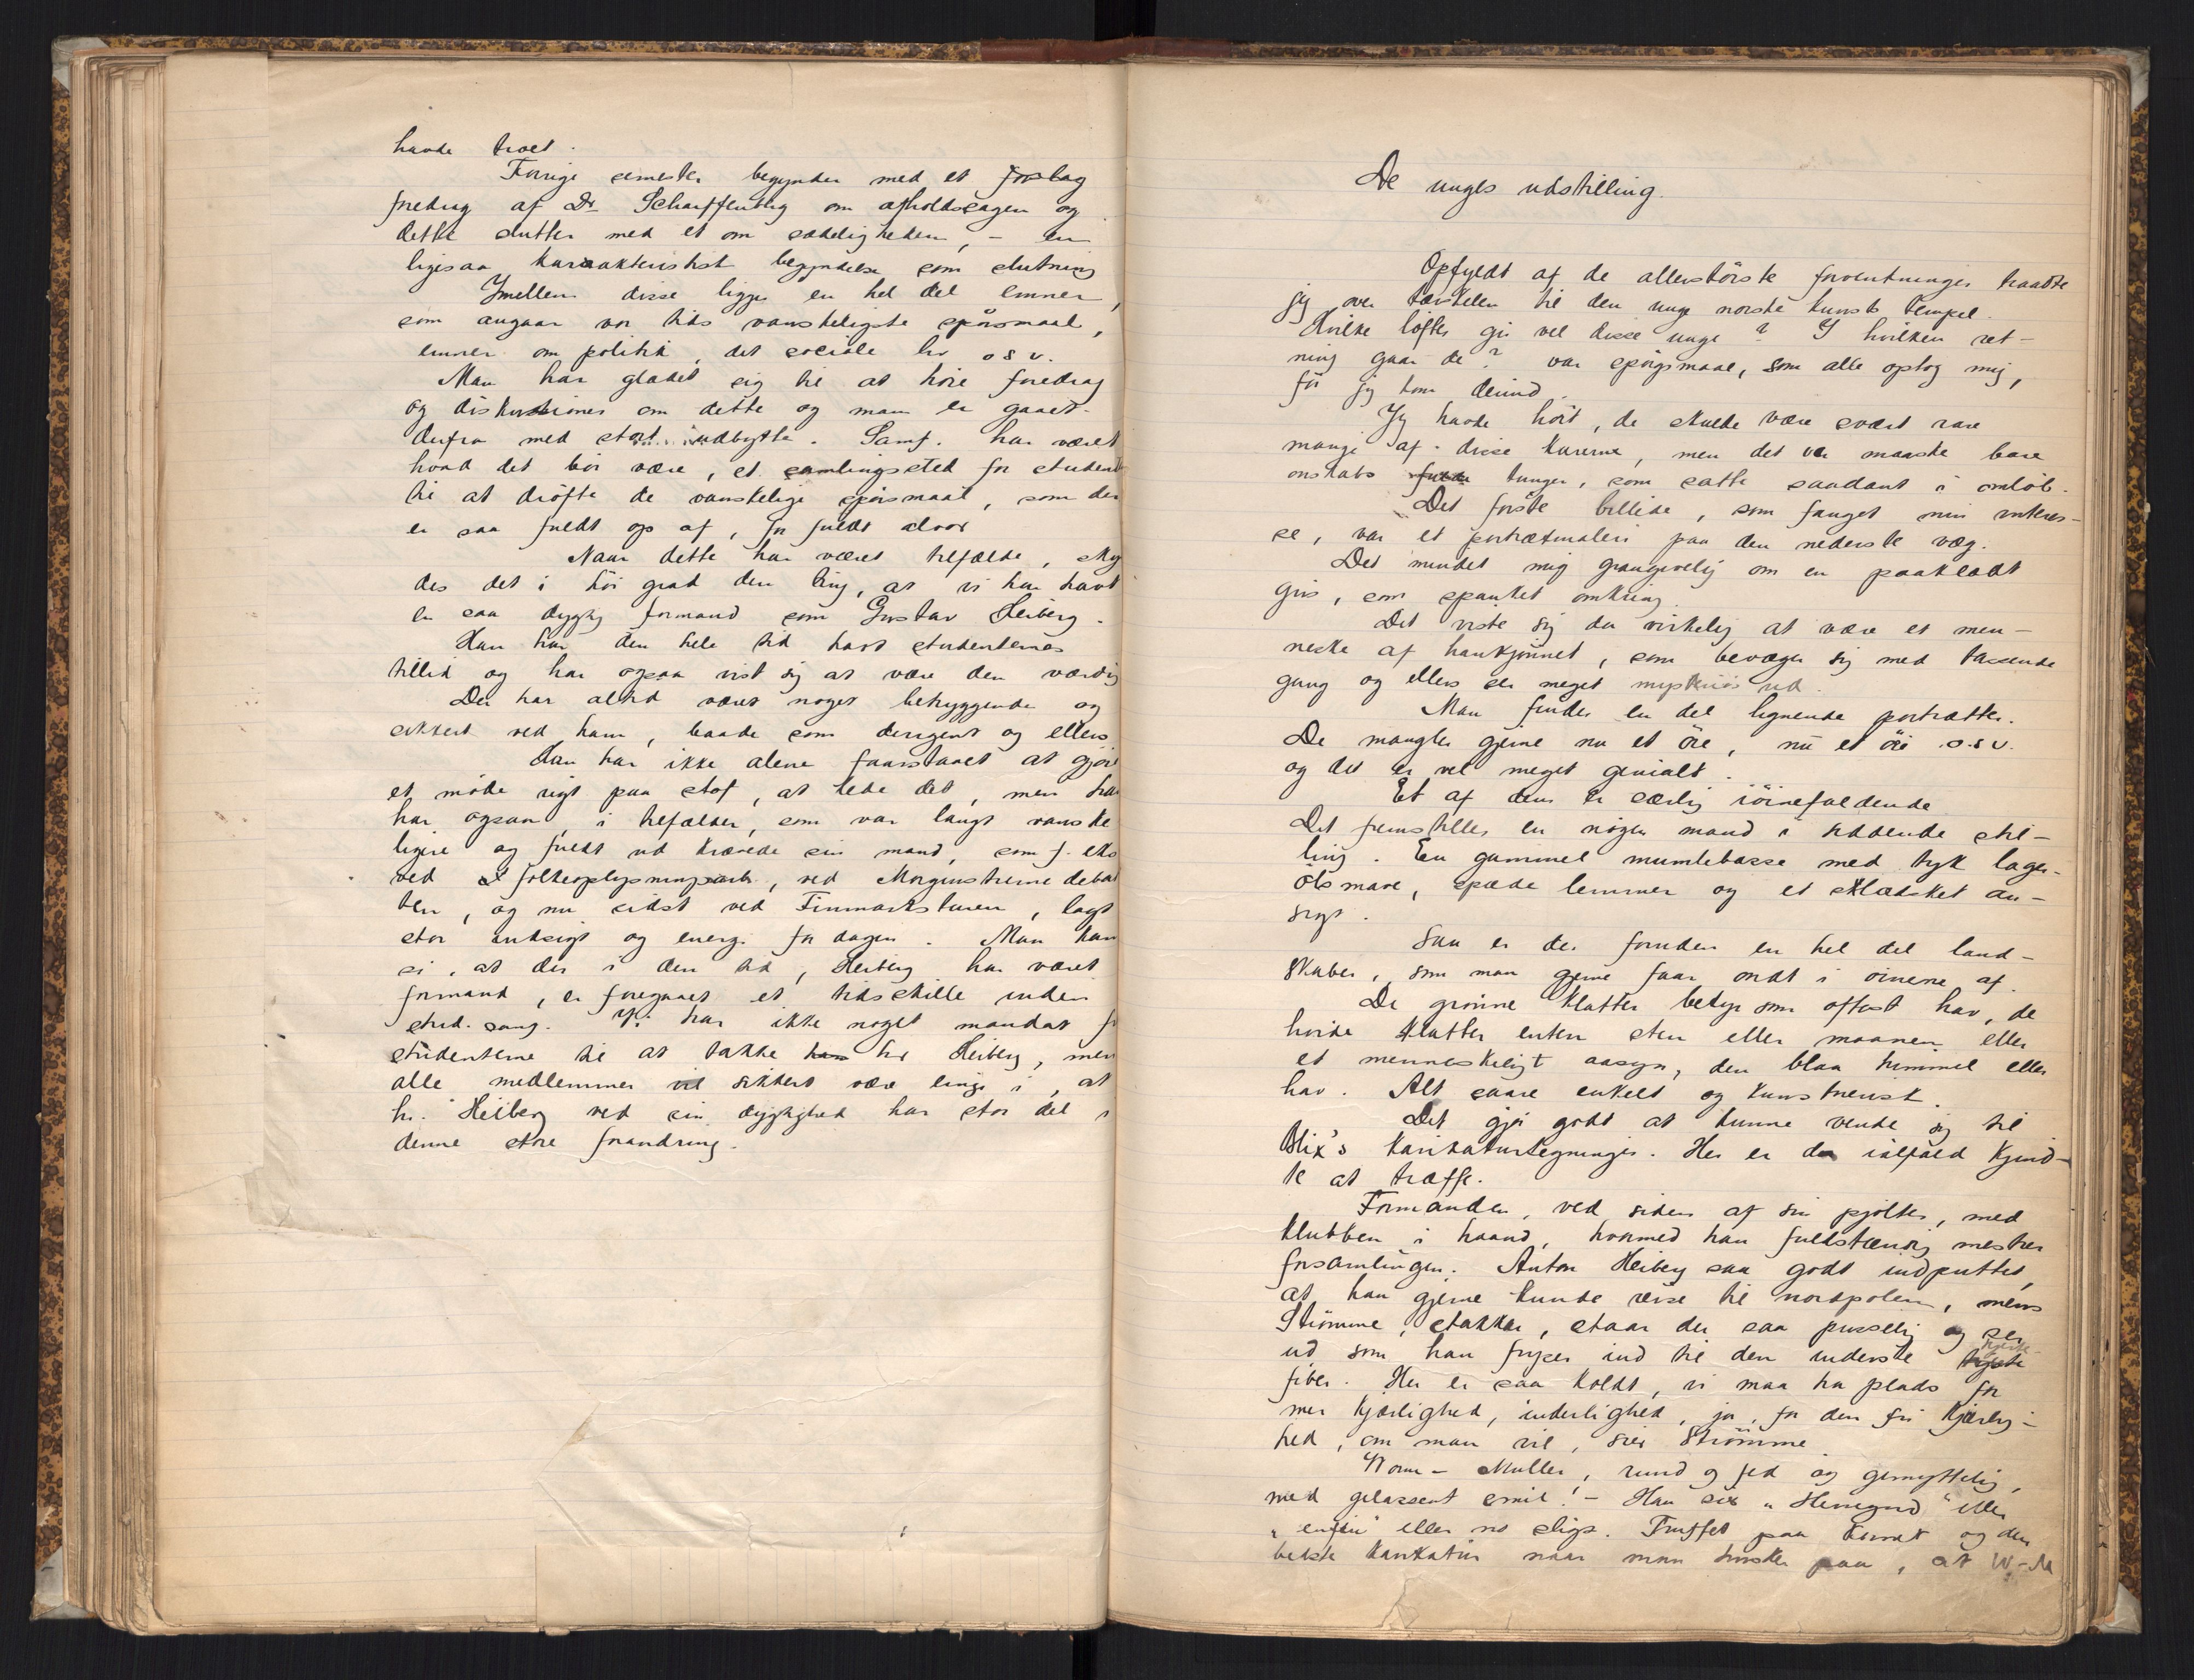 havde troet.
Forrige semester begynder med et forslag
foredrag af Dr Scharffenberg om afholdssagen og
dette slutter med et om sædeligheden, – en
ligesaa karaakteristisk begyndelse som slutning
Imellem disse ligger en hel del emner,
som angaar vor tids vanskeligste spörsmaal,
emner om politik, det sociale liv o s v.
Man har glædet sig til at höre foredrag
og diskussioner om dette og man er gaaet
derfra med stort udbytte. Samf. har været
hvad det bör være, et samlingssted for student
til at dröfte de vanskelige spörsmaal, som der
er saa fuldt op af, for fuldt alvor
Naar dette har været tilfælde, skyl
des det i höi grad den ting, at vi har havt
en saa dygtig formand som Gustav Heiberg.
Han har den hele tid havt studenternes
tillid og har ogsaa vist sig at være den værdig
Der har altid været noget betryggende og
sikkert ved ham, baade som dirigent og ellers
Han har ikke alene forstaaet at gjöre
et möde rigt paa stof, at lede det, men han
har ogsaa, i tilfælder, som var langt vanske
ligere og fuldt ud krævede sin mand, som f. eks
ved folkeoplysningsarb., ved Morgenstierne debat
ten, og nu sidst ved Finmarksturen, lagt
stor indsigt og energi for dagen. Man kan
si, at der i den tid, Heiberg har været
formand, er foregaaet et tidsskille inden
stud. samf. Vi har ikke noget mandat fr
studenterne til at takke ham hr Heiberg, men
alle medlemmer vil sikkert være enige i, at
hr. Heiberg ved sin dygtighed har stor del i
denne store forandring.
De unges udstilling.
Opfyldt af de allerstörste forventninger traadte
jeg over tærskelen til den unge norske kunsts tempel.
Hvilke löfter gir vel disse unge? I hvilken ret-
ning gaar de? var spörgsmaal, som alle optog mig,
för jeg kom derind.
Jeg havde hört, de skulde være svært rare
mange af disse karerne, men det var maaske bare
onskabs fulde tunger, som satte saadant i omlöb.
Det förste billede, som fanget min interes-
se, var et portrætmaleri paa den nederste væg.
Det mindet mig grangivelig om en paaklædt
gris, som spanket omkring.
Det viste sig da virkelig at være et men-
neske af hankjönnet, som bevæger sig med tassende
gang og ellers ser meget mysteriös ud.
Man finder en del lignende portrætter.
De mangler gjerne nu et öre, nu et öie o.s v.
og det er vel meget genialt.
Et af dem er særlig iöinefaldende
Det fremstiller en nögen mand i siddende stil-
ling. En gammel mumlebasse med tyk lager-
ölsmave, spæde lemmer og et sklædsket an-
sigt.
Saa er der foruden en hel del land-
skaber, som man gjerne faar ondt i öinene af.
De grönne klatter betyr som oftest hav, de
hvide klatter enten sten eller maanen eller
et menneskeligt aasyn, den blaa himmel eller
hav. Alt saare enkelt og kunstnerisk.
Det gjör godt at kunne vende sig til
Blix's karikaturtegninger. Her er da ialfald kjend-
te at træffe.
Formanden, ved siden af sin pjolter, med
klubben i haand, hvormed han fuldstændig mestrer
forsamlingen. Anton Heiberg saa godt indputtet,
at han gjerne kunde reise til nordpolen, mens
Strömme, stakkar, staar der saa pusselig og ser
ud som han fryser ind til den inderste hjerte-
fiber. Her er saa koldt, vi maa ha plads for
mer kjærlighed, inderlighed, ja, for den fri kjærlig-
hed, om man vil, sier Strömme.
Worm-Müller, rund og fed og gemyttelig,
med gelassent smil! – Han sier "Herregud" eller
"enfin" eller no sligt. Truffet paa kornet og den
bedste karikatur naar man husker paa, at W-M